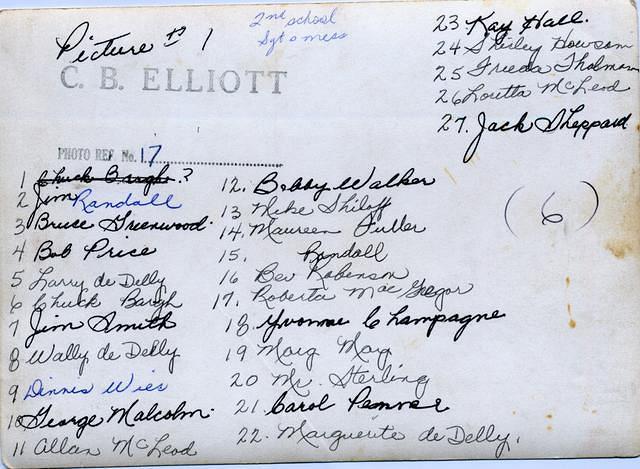 Picture #1
2nd school
Sgt o mess
C. B. ELLIOTT
PHOTO REF. No. 17
1 Chuck Bargh ?
2 Jim Randall
3 Bruce Greenwood.
4 Bob Price
5 Larry de Delly
6 Chuck Bargh
7 Jim Smith
8 Wally de Delly
9 Dinnis Wies
10 George Malcolm.
11 Allan McLeod
12. Bobby Walker
13 Mike Shiloff
14. Maureen Fuller
15. Randall
16 Bev Robenson
17. Roberta MacGregor
18. Yvonne Champagne
19 Marg May
20 Mr. Sterling
21. Carol Penner
22. Marguerite de Delly.
23 Kay Hall.
24 Shirley Howsam
25 Freeda Tholman
26 Loretta McLeod
27. Jack Sheppard
(6)